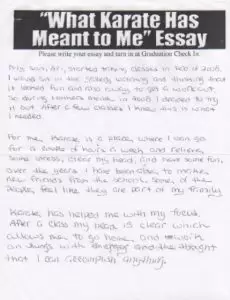 "What Karate Has
Meant to Me" Essay
Please write your essay and turn in at Graduation Check In
My son, Ari, started taking classes in Feb of 2008.
I would sit in the gallery watching and thinking that
it looked fun and also a way to get a workout.
So during Mothers month in 2008 I decided to try
it out. After a few classes I knew this is what
I needed.
For me Karate is a place where I can go
for a couple of hours a week and relieve
some stress, clear my head, and have some fun.
Over the years I have been able to make
new friends from the school. Some of the
people feel like they are part of my family.
Karate has helped me with my focus.
After a class my head is clear which
allows me to go home and work
on things with energy and the thought
that I can accomplish anything.